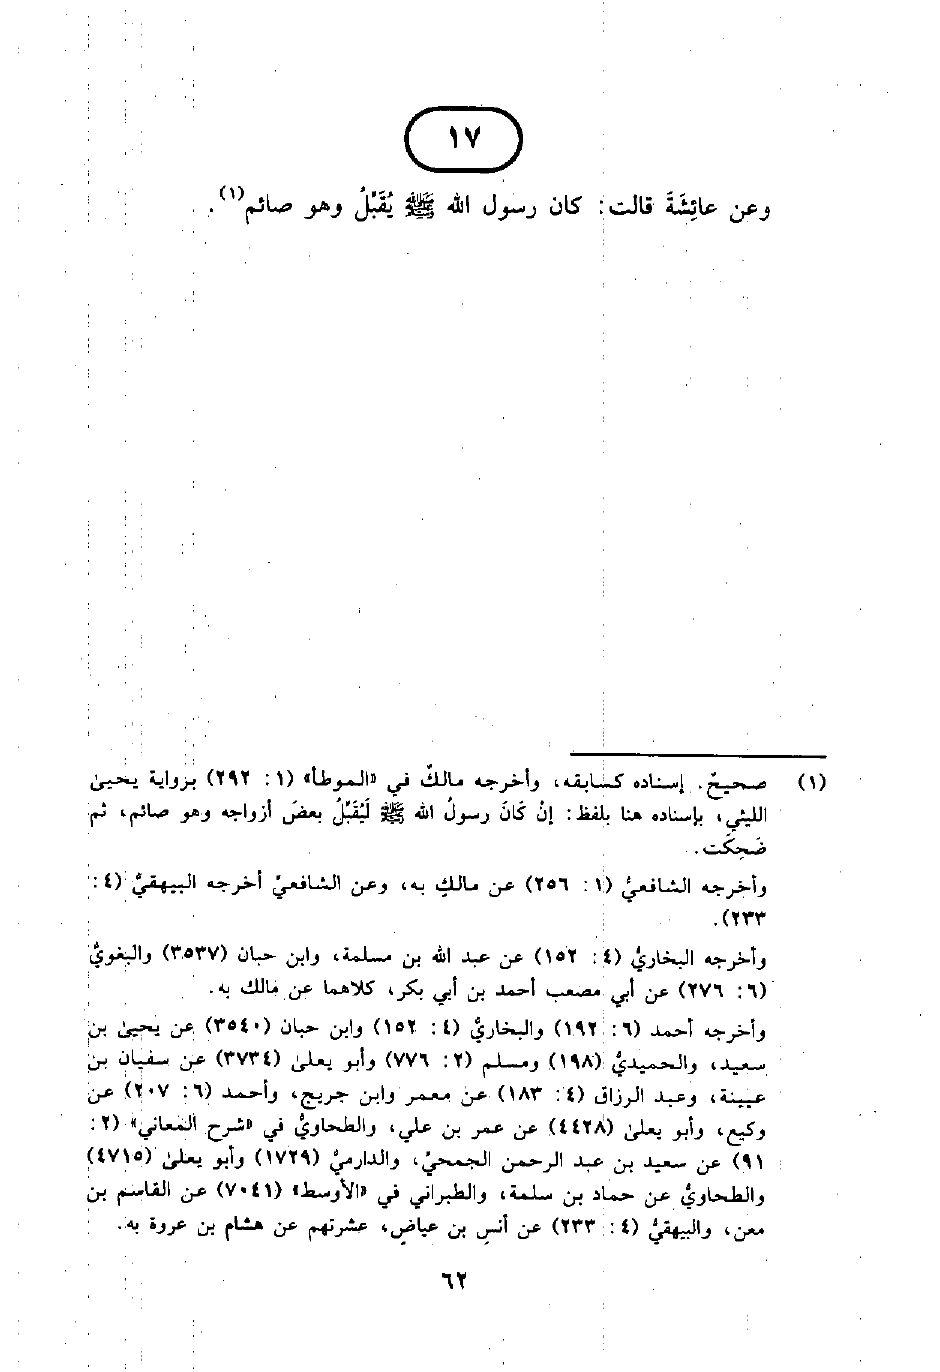 ١٧
وعن عائِشَةَ قالت: كان رسول الله ﷺ يُقَبِّلُ وهو صائم(١).
(١) صحيحٌ. إسناده كسابقه، وأخرجه مالكٌ في «الموطأ» (١ : ٢٩٢) برواية يحيىٰ
الليثي، بإسناده هنا بلفظ: إنْ كَانَ رسولُ الله ﷺ لَيُقَبِّلُ بعضَ أزواجه وهو صائم، ثم
ضَحِكَت.
وأخرجه الشافعيُّ (١ : ٢٥٦) عن مالكٍ به، وعن الشافعيِّ أخرجه البيهقيُّ (٤ :
٢٣٣).
وأخرجه البخاريُّ (٤ : ١٥٢) عن عبد الله بن مسلمة، وابن حبان (٣٥٣٧) والبغويُّ
(٦ : ٢٧٦) عن أبي مصعب أحمد بن أبي بكر، كلاهما عن مالك به.
وأخرجه أحمد (٦ : ١٩٢) والبخاريُّ (٤ : ١٥٢) وابن حبان (٣٥٤٠) عن يحيىٰ بن
سعيد، والحميديُّ (١٩٨) ومسلم (٢ : ٧٧٦) وأبو يعلىٰ (٣٧٣٤) عن سفيان بن
عيينة، وعبد الرزاق (٤ : ١٨٣) عن معمر وابن جريج، وأحمد (٦ : ٢٠٧) عن
وكيع، وأبو يعلىٰ (٤٤٢٨) عن عمر بن علي، والطحاويُّ في «شرح المعاني» (٢ :
٩١) عن سعيد بن عبد الرحمن الجمحيِّ، والدارميُّ (١٧٢٩) وأبو يعلىٰ (٤٧١٥)
والطحاويُّ عن حماد بن سلمة، والطبراني في «الأوسط» (٧٠٤١) عن القاسم بن
معن، والبيهقيُّ (٤ : ٢٣٣) عن أنسِ بن عياضٍ، عشرتهم عن هشام بن عروة به.
٦٢